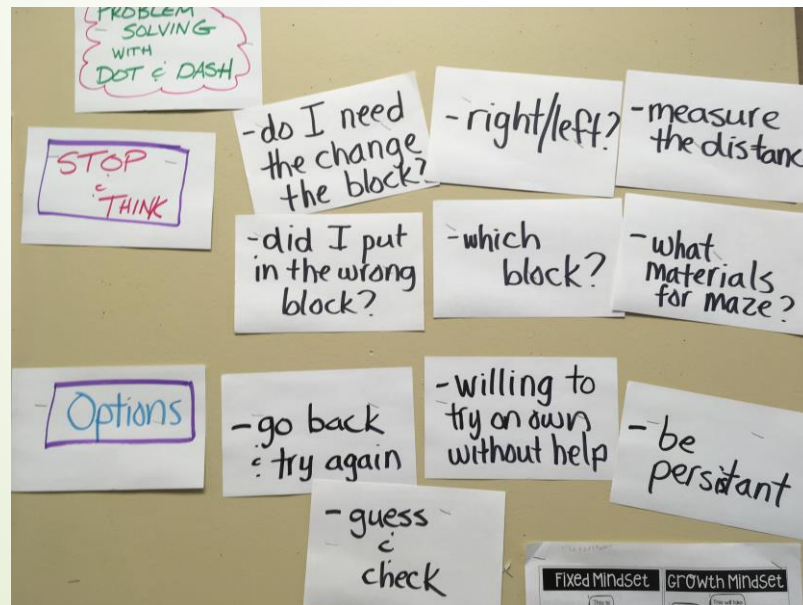 PROBLEM
SOLVING
WITH
DOT & DASH
STOP
&
THINK
-do I need
the change
the block?
-right/left?
-measure
the distanc
-did I put
in the wrong
block?
-which
block?
-what
materials
for maze?
Options
-go back
& try again
-willing to
try on own
without help
-be
persitant
-guess
&
check
Fixed Mindset
Growth Mindset
This is
This will take